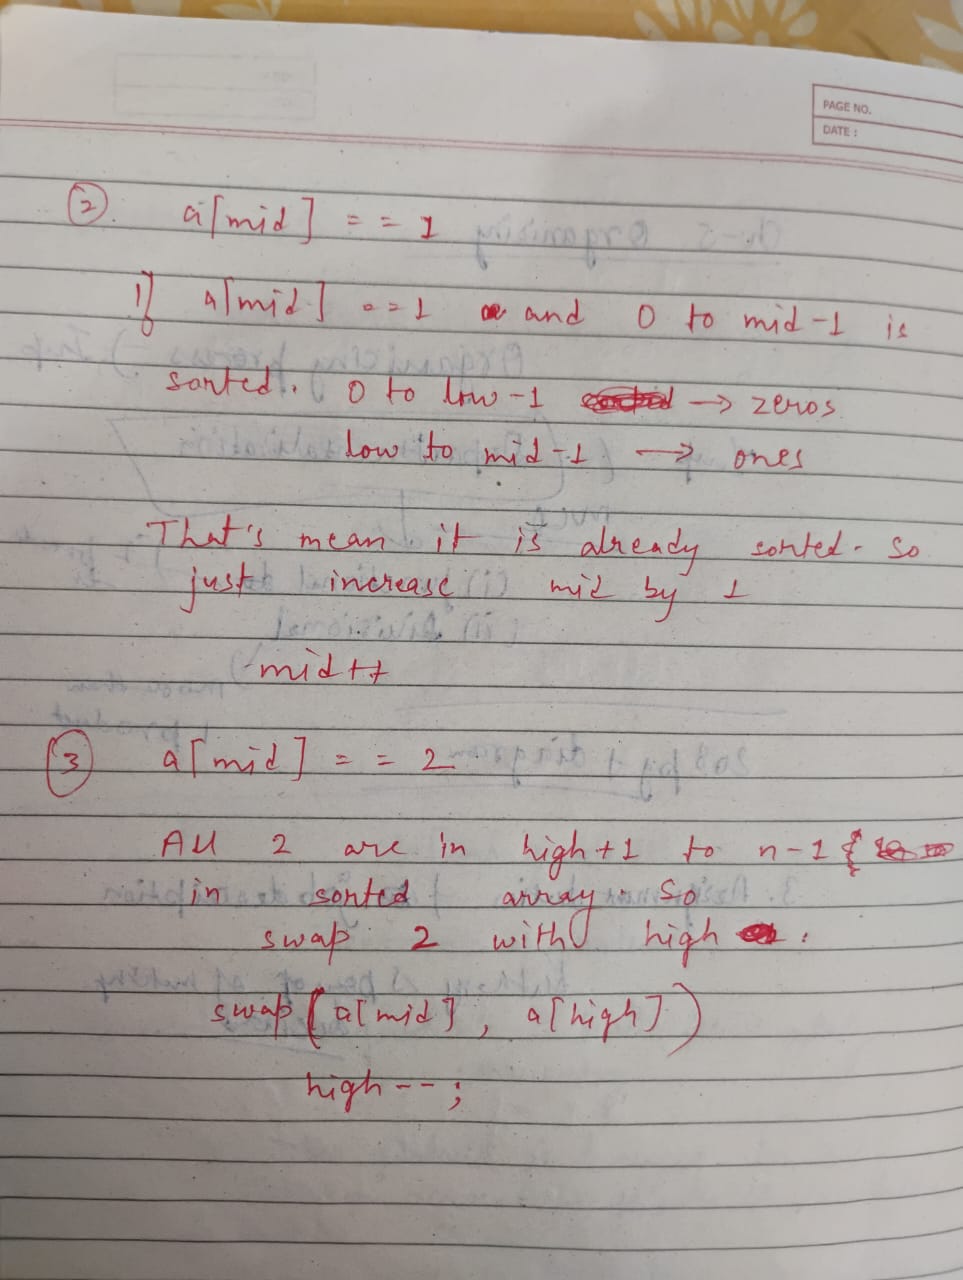 PAGE NO.
DATE :
② a[mid] == 1
If a[mid] == 1 and 0 to mid-1 is
sorted. 0 to low-1 → zeros
low to mid-1 → ones
That's mean it is already sorted. So
just increase mid by 1
mid++
③ a[mid] == 2
All 2 are in high+1 to n-1 {
in sorted array. So
swap 2 with high .
swap(a[mid], a[high])
high--;